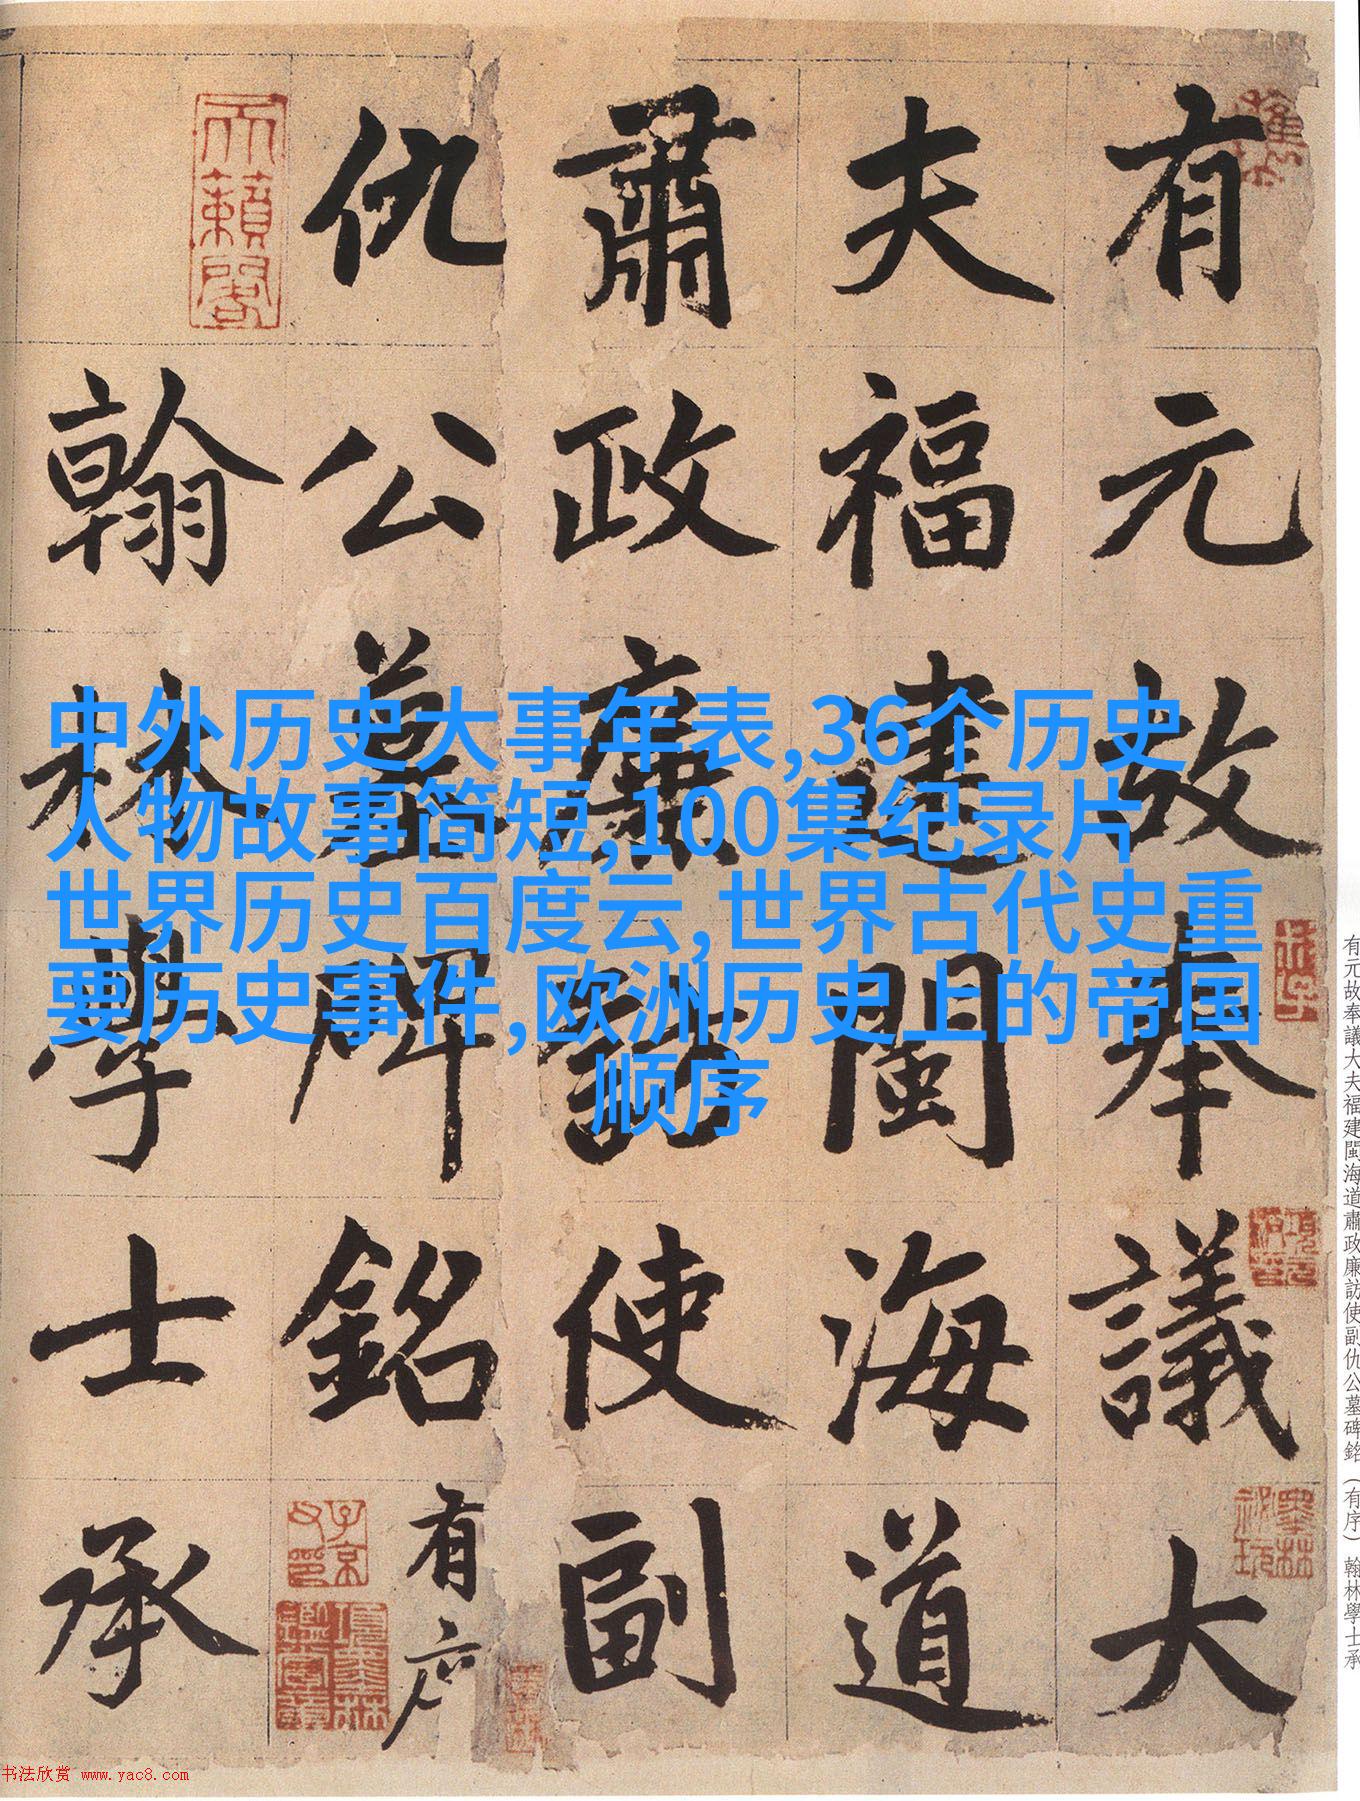 有元故奉議大
夫福建閩海道
肅政廉訪使副
仇公墓碑銘有序
翰林學士承
天籟閣
子京父印
項墨林鑑賞章
墨林祕玩
項元汴印
中外历史大事年表,36个历史
人物故事简短,100集纪录片
世界历史百度云,世界古代史重
要历史事件,欧洲历史上的帝国
顺序
有元故奉議大夫福建閩海道肅政廉訪使副仇公墓碑銘（有序）翰林學士承
书法欣赏 www.yac8.com